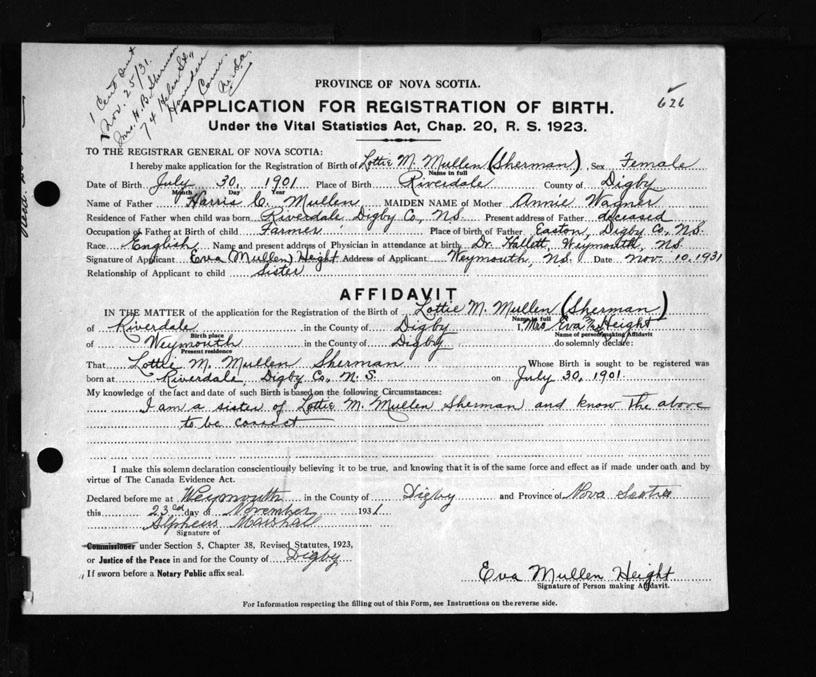 1 Cent sent
Nov. 25/31.
Mrs. H. B. Sherman
74 Helen St.,
Hamden
Conn.
U.S.A.
626
PROVINCE OF NOVA SCOTIA.
APPLICATION FOR REGISTRATION OF BIRTH.
Under the Vital Statistics Act, Chap. 20, R. S. 1923.
TO THE REGISTRAR GENERAL OF NOVA SCOTIA:
I hereby make application for the Registration of Birth of Lottie M. Mullen (Sherman), Sex Female
Name in full
Date of Birth July 30, 1901 Place of Birth Riverdale County of Digby
Month Day Year
Name of Father Harris C. Mullen MAIDEN NAME of Mother Annie Wagner
Residence of Father when child was born Riverdale Digby Co., N.S. Present address of Father deceased
Occupation of Father at Birth of child Farmer Place of birth of Father Easton, Digby Co., N.S.
Race English Name and present address of Physician in attendance at birth Dr. Hallett, Weymouth, N.S.
Signature of Applicant Eva (Mullen) Height Address of Applicant Weymouth, N.S. Date Nov. 10, 1931
Relationship of Applicant to child sister
AFFIDAVIT
IN THE MATTER of the application for the Registration of Birth of Lottie M. Mullen (Sherman)
Name in full
of Riverdale in the County of Digby I, Mrs Eva M. Height
Birth place Name of person making Affidavit
of Weymouth in the County of Digby do solemnly declare:
Present residence
That Lottie M. Mullen Sherman Whose Birth is sought to be registered was
born at Riverdale, Digby Co., N.S. on July 30, 1901.
My knowledge of the fact and date of such Birth is based on the following Circumstances:
I am a sister of Lottie M. Mullen Sherman and know the above
to be correct
I make this solemn declaration conscientiously believing it to be true, and knowing that it is of the same force and effect as if made under oath and by
virtue of The Canada Evidence Act.
Declared before me at Weymouth in the County of Digby and Province of Nova Scotia
this 23rd day of November 1931
Alpheus Marshall
Signature of
Commissioner under Section 5, Chapter 38, Revised Statutes, 1923,
or Justice of the Peace in and for the County of Digby
If sworn before a Notary Public affix seal.
Eva Mullen Height
Signature of Person making Affidavit.
For Information respecting the filling out of this Form, see Instructions on the reverse side.